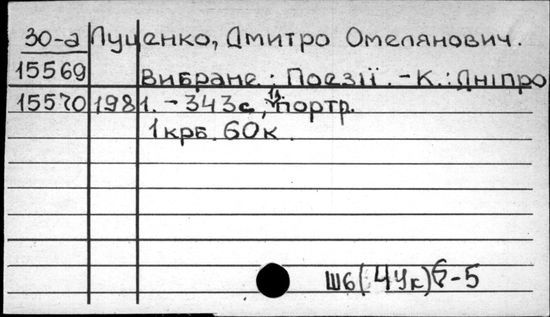 30-а Луценко, Дмитро Омелянович.
15569 Вибране : Поезії. -К.: Дніпро
15570 1981. - 343с, портр.
1 крб. 60к.
Ш6(4Ук)6-5